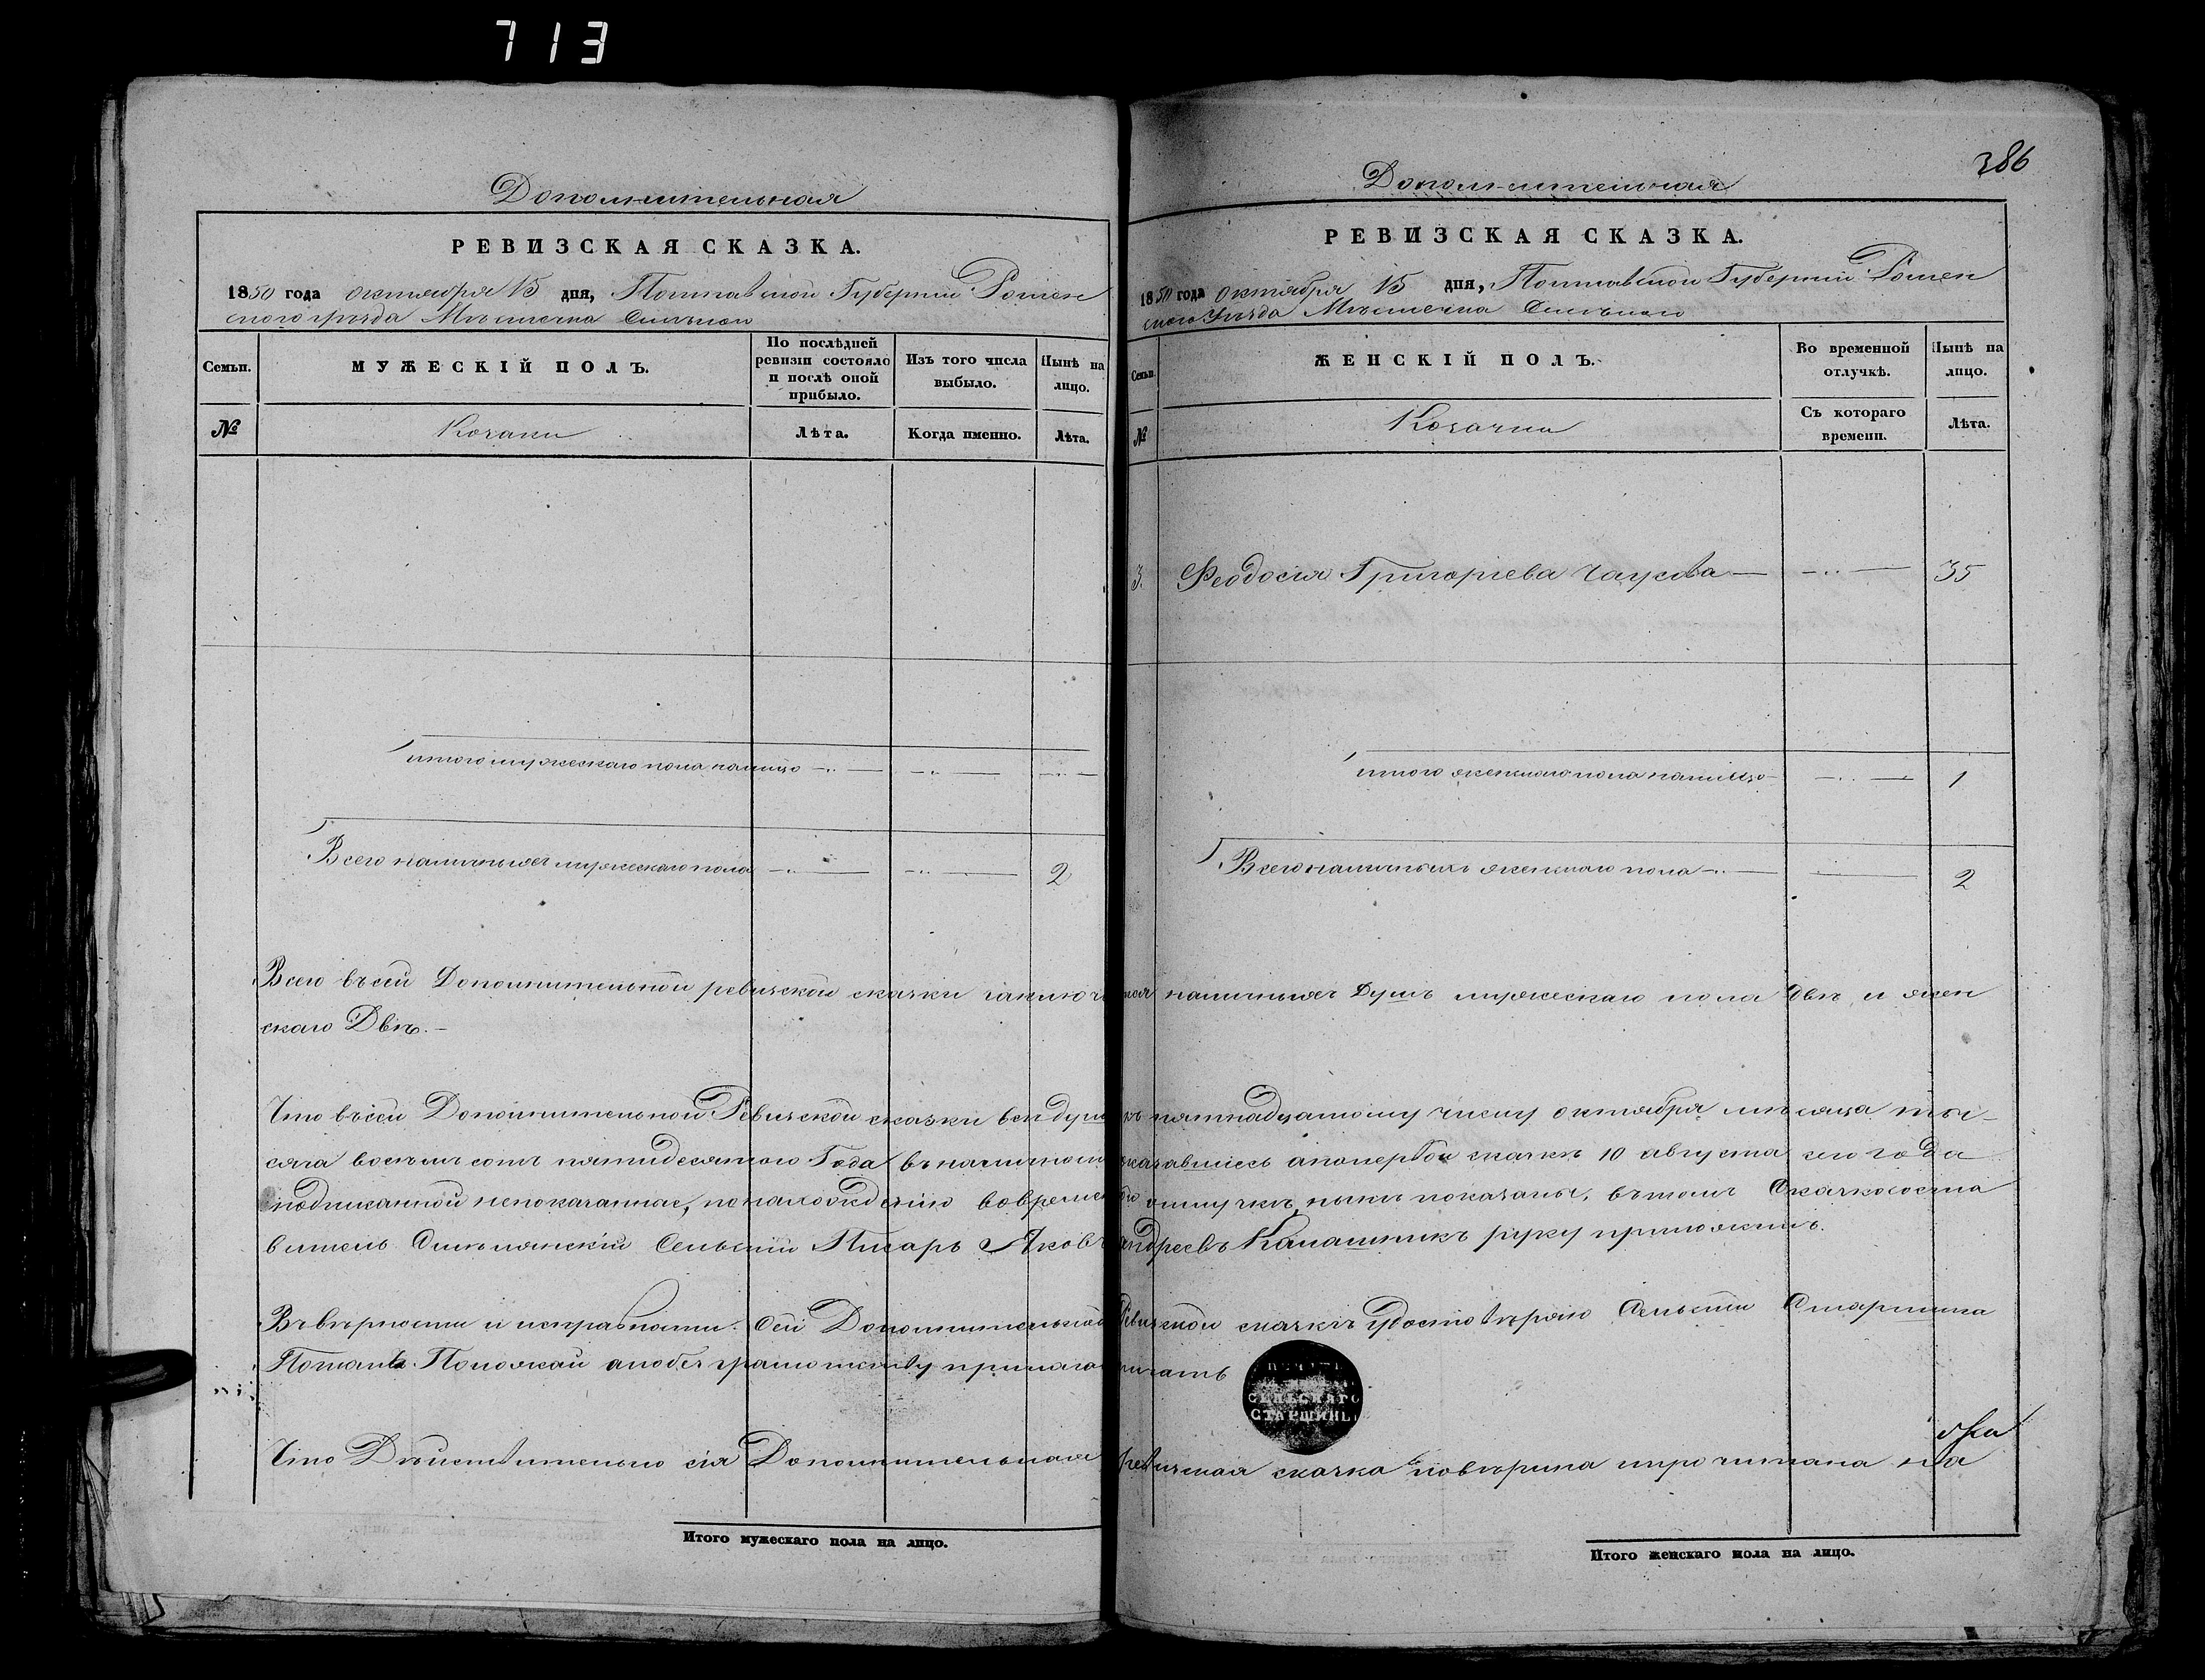 713
Дополнительная
РЕВИЗСКАЯ СКАЗКА.
1850 года октября 15 дня, Полтавской Губернии Ромен
ского уѣзда Мѣстечка Смѣлого
Семьи.
МУЖЕСКІЙ ПОЛЪ.
По послѣдней ревизіи состояло и послѣ оной прибыло.
Изъ того числа выбыло.
Нынѣ на лицо.
№
Козаки
Лѣта.
Когда именно.
Лѣта.
итого мужескаго пола налицо —..— —..— —..—
Всего наличныхъ мужескаго пола —..— —..— 2
386
Дополнительная
РЕВИЗСКАЯ СКАЗКА.
1850 года октября 15 дня, Полтавской Губерніи Ромен
ского Уѣзда Мѣстечка Смѣлого
Семьи.
ЖЕНСКІЙ ПОЛЪ.
Во временной отлучкѣ.
Нынѣ на лицо.
№
Козачки
Съ котораго времени.
Лѣта.
3. Феодосія Григоріева Чаусова — —..— 35
итого женскаго пола налицо — —..— 1
Всего наличныхъ женскаго пола —..— — 2
Всего въ сей Дополнительной ревизской сказки наличныхъ Душъ мужескаго пола двѣ, и жен
скаго Двѣ. —
Что въ сей Дополнительной Ревизской сказки всѣ души къ пятнадцатому числу октября мѣсяца ты-
сяча восемь сотъ пятидесятого Года въ наличном а по первой сказкѣ 10 августа сего года
подписанной непоказанные, по нахожденію во времен отлучкѣ, нынѣ показаны, въ томъ Сказкососта
витель Смѣлянскій Сельскій Писарь Яковъ Андреевъ Калашникъ руку приложилъ.
Въ вѣрности и исправности сей Дополнительной Ревизской сказки удостовѣряю Сельскій Старшина
Потапъ а по безграмотству прилагаю печать
СЕЛЬСКАГО
СТАРШИНЫ
Что Дѣйствительно сія Дополнительная ревизская сказка повѣрена и прочитана на
Итого мужескаго пола на лицо.
Итого женскаго пола на лицо.